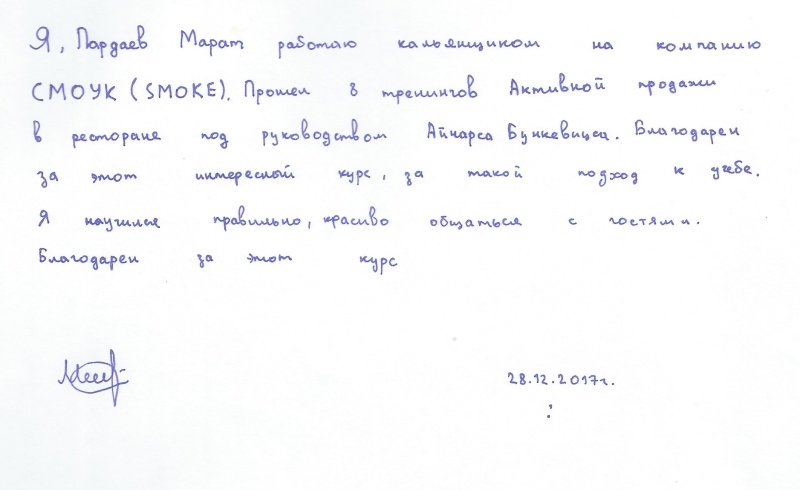 Я, Пардаев Марат работаю кальянщиком на компанию
СМОУК (SMOKE). Прошел 8 тренингов Активной продажи
в ресторане под руководством Айнарса Бункевицса. Благодарен
за этот интересный курс, за такой подход к учебе.
Я научился правильно, красиво общаться с гостями.
Благодарен за этот курс
28.12.2017г.